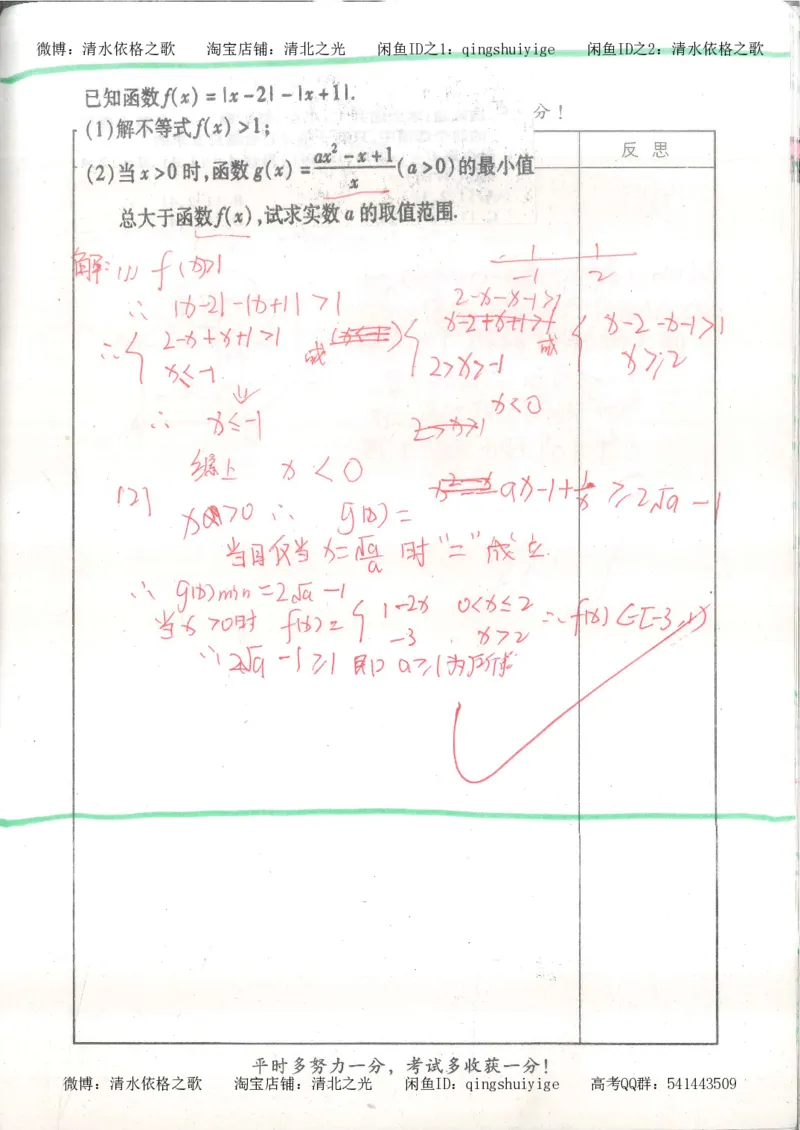 微博：清水依格之歌 淘宝店铺：清北之光 闲鱼ID之1：qingshuiyige 闲鱼ID之2：清水依格之歌
已知函数f(x)=|x-2|-|x+1|.
分！
(1)解不等式f(x)>1;
反思
(2)当x>0时,函数g(x)=(ax²-x+1)/x(a>0)的最小值
总大于函数f(x),试求实数a的取值范围.
解:(1) f(x)>1
-1 2
∴ |x-2|-|x+1|>1
∴{2-x+x+1>1 x≤-1 或 {2-x-x-1>1 2>x>-1 或 {x-2-x-1>1 x≥2
∴ x≤-1 x<0
综上 x<0
(2) x>0 ∴ g(x)= ax-1+1/x ≥2√a-1
当且仅当x=√a/a时"="成立.
∴ g(x)min=2√a-1
当x>0时 f(x)={1-2x 0<x≤2 -3, x>2 ∴f(x)∈[-3,1)
∴2√a-1≥1 即 a≥1为所求
平时多努力一分，考试多收获一分！
微博：清水依格之歌 淘宝店铺：清北之光 闲鱼ID：qingshuiyige 高考QQ群：541443509